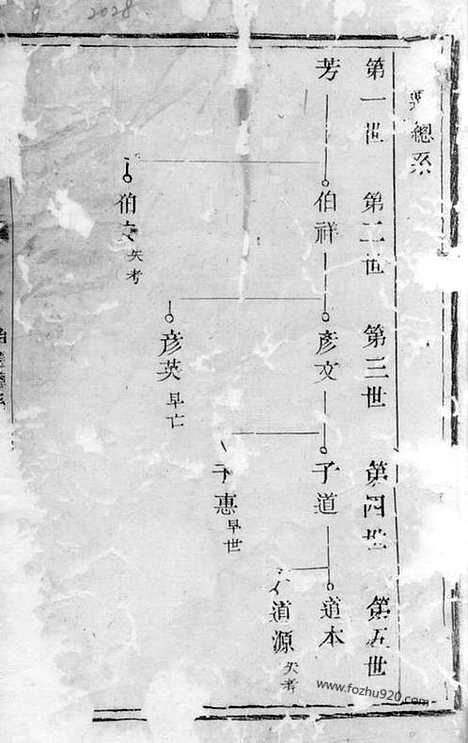 2028
總系
第一世 第二世 第三世 第四世 第五世
芳 伯祥 彥文 子道 道本
道源 失考
子惠 早世
彦英 早亡
伯 失考
www.fozhu920.com